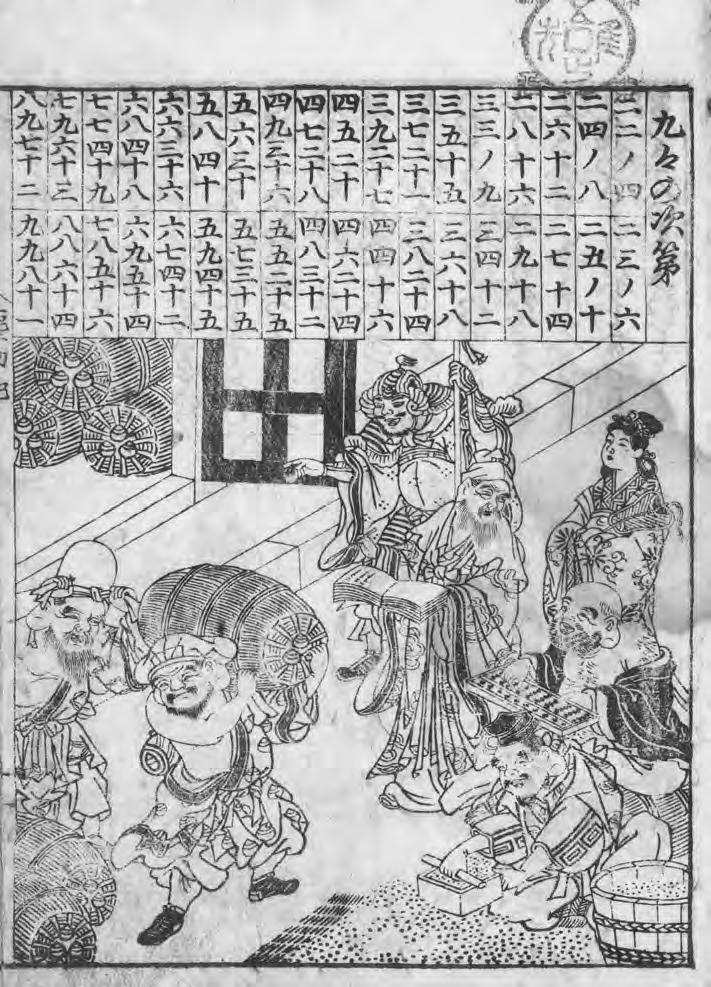 九々の次第
二二ノ四 二三ノ六
二四ノ八 二五ノ十
二六十二 二七十四
二八十六 二九十八
三三ノ九 三四十二
三五十五 三六十八
三七二十一 三八二十四
三九二十七 四四十六
四五二十 四六二十四
四七二十八 四八三十二
四九三十六 五五二十五
五六三十 五七三十五
五八四十 五九四十五
六六三十六 六七四十二
六八四十八 六九五十四
七七四十九 七八五十六
七九六十三 八八六十四
八九七十二 九九八十一